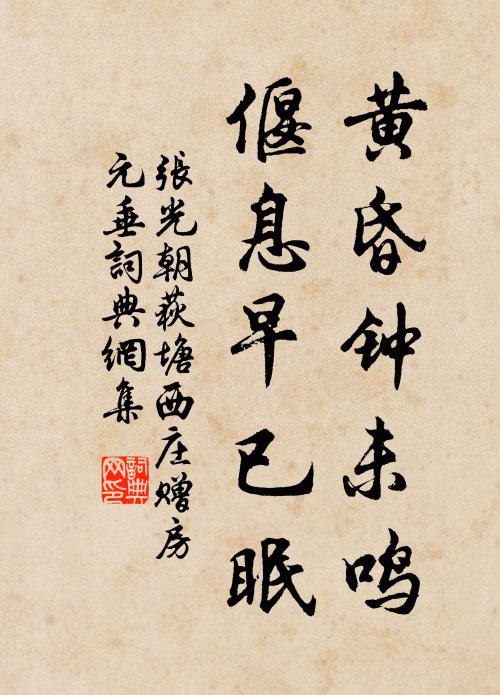 黄昏钟未鸣
偃息早已眠
張光朝荻塘西庄赠房
元垂詞典網集
詞典
网印